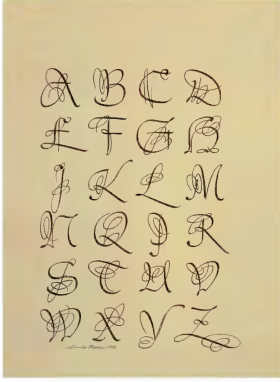 A B C D
E F G H
J K L M
N Q P R
S T U V
W X Y Z